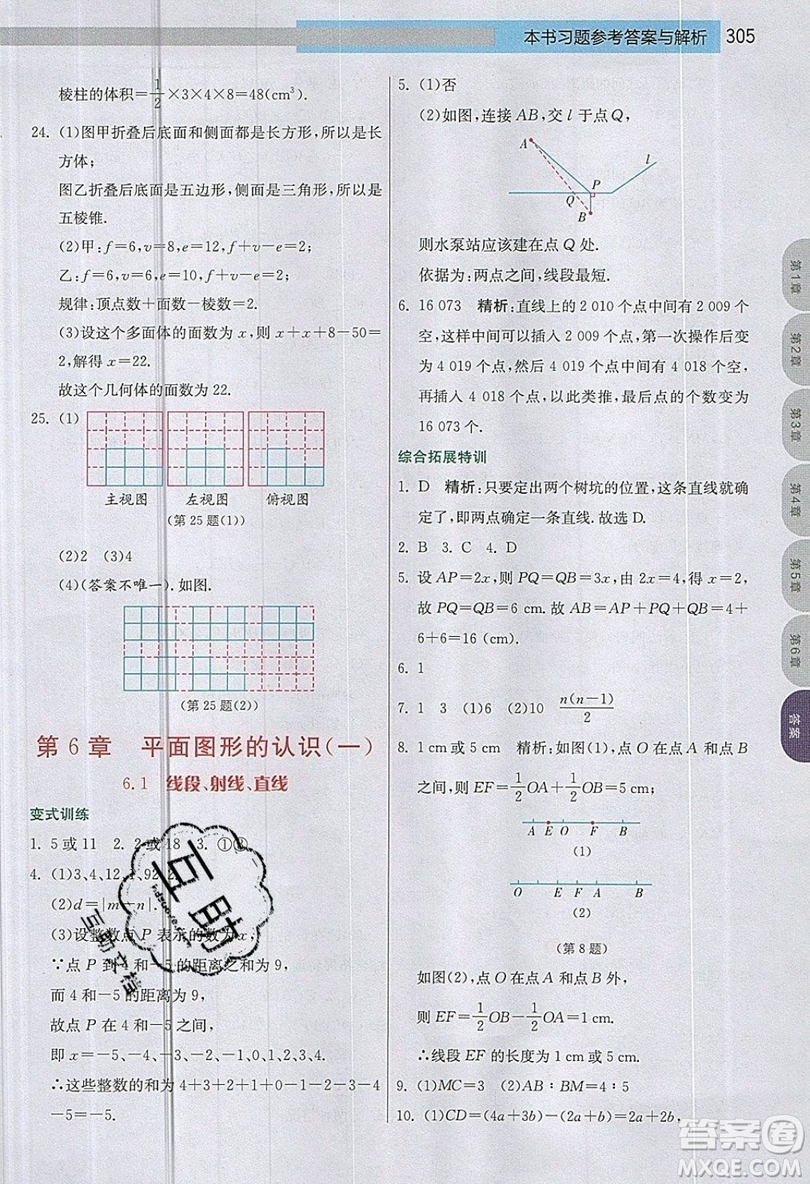 本书习题参考答案与解析 305
棱柱的体积=1/2×3×4×8=48(cm³).
24. (1)图甲折叠后底面和侧面都是长方形,所以是长
方体;
图乙折叠后底面是五边形,侧面是三角形,所以是
五棱锥.
(2)甲:f=6,v=8,e=12,f+v-e=2;
乙:f=6,v=6,e=10,f+v-e=2;
规律:顶点数+面数-棱数=2.
(3)设这个多面体的面数为x,则x+x+8-50=
2,解得x=22.
故这个几何体的面数为22.
25. (1)
主视图 左视图 俯视图
(第25题(1))
(2)2 (3)4
(4)(答案不唯一).如图.
(第25题(2))
第6章 平面图形的认识(一)
6.1 线段、射线、直线
变式训练
1. 5或11 2. 2或18 3. ①②
4. (1)3、4、12、92、2
(2)d=|m-n|.
(3)设整数点P表示的数为x,
∵点P到4和-5的距离之和为9,
而4和-5的距离为9,
故点P在4和-5之间,
即x=-5、-4、-3、-2、-1、0、1、2、3、4.
∴这些整数的和为4+3+2+1+0-1-2-3-4
-5=-5.
5. (1)否
(2)如图,连接AB,交l于点Q,
A
l
P
Q
B
则水泵站应该建在点Q处.
依据为:两点之间,线段最短.
6. 16 073 精析:直线上的2 010个点中间有2 009个
空,这样中间可以插入2 009个点,第一次操作后变为
4 019个点,然后4 019个点中间有4 018个空,
再插入4 018个点,以此类推,最后的点的个数变为
16 073个.
综合拓展特训
1. D 精析:只要定出两个树坑的位置,这条直线就确
定了,即两点确定一条直线.故选D.
2. B 3. C 4. D
5. 设AP=2x,则PQ=QB=3x,由AP=4,得x=2,
故PQ=QB=6 cm.所以AB=AP+PQ+QB=4+
6+6=16(cm).
6. 1
7. 1 3 (1)6 (2)10 n(n-1)/2
8. 1 cm或5 cm 精析:如图(1),点O在点A、点B
之间,则EF=1/2OA+1/2OB,
A E O F B
(1)
O E A F B
(2)
(第8题)
如图(2),点O在点A、点B之外,
则EF=1/2OB-1/2OA,
∴线段EF的长度为1 cm或5 cm.
9. (1)MC=3 (2)AB:BM=4:5
10. (1)CD=(4a+3b)-(2a+b)=2a+2b,
第1章
第2章
第3章
第4章
第5章
第6章
答案
互助
互助文档
答案圈
MXQE.COM